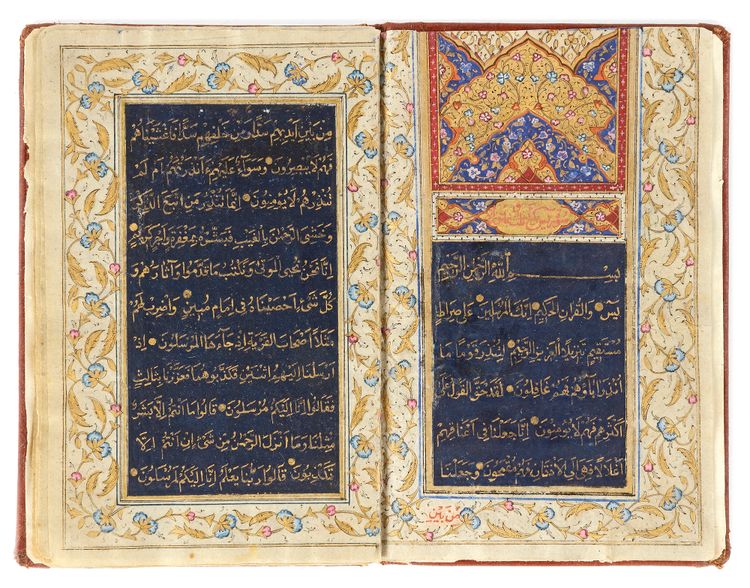 بسم الله الرحمن الرحيم
يس والقران الحكيم انك لمن المرسلين على صراط
مستقيم تنزيل العزيز الرحيم لتنذر قوما ما
انذر اباؤهم فهم غافلون لقد حق القول على
اكثرهم فهم لا يؤمنون انا جعلنا في اعناقهم
اغلالا فهي الى الاذقان فهم مقمحون وجعلنا
من بين
من بين ايديهم سدا ومن خلفهم سدا فاغشيناهم
فهم لا يبصرون وسواء عليهم ءانذرتهم ام لم
تنذرهم لا يؤمنون انما تنذر من اتبع الذكر
وخشي الرحمن بالغيب فبشره بمغفرة واجر كريم
انا نحن نحيي الموتى ونكتب ما قدموا واثارهم و
كل شيء احصيناه في امام مبين واضرب لهم
مثلا اصحاب القرية اذ جاءها المرسلون اذ
ارسلنا اليهم اثنين فكذبوهما فعززنا بثالث
فقالوا انا اليكم مرسلون قالوا ما انتم الا بشر
مثلنا وما انزل الرحمن من شيء ان انتم الا
تكذبون قالوا ربنا يعلم انا اليكم لمرسلون